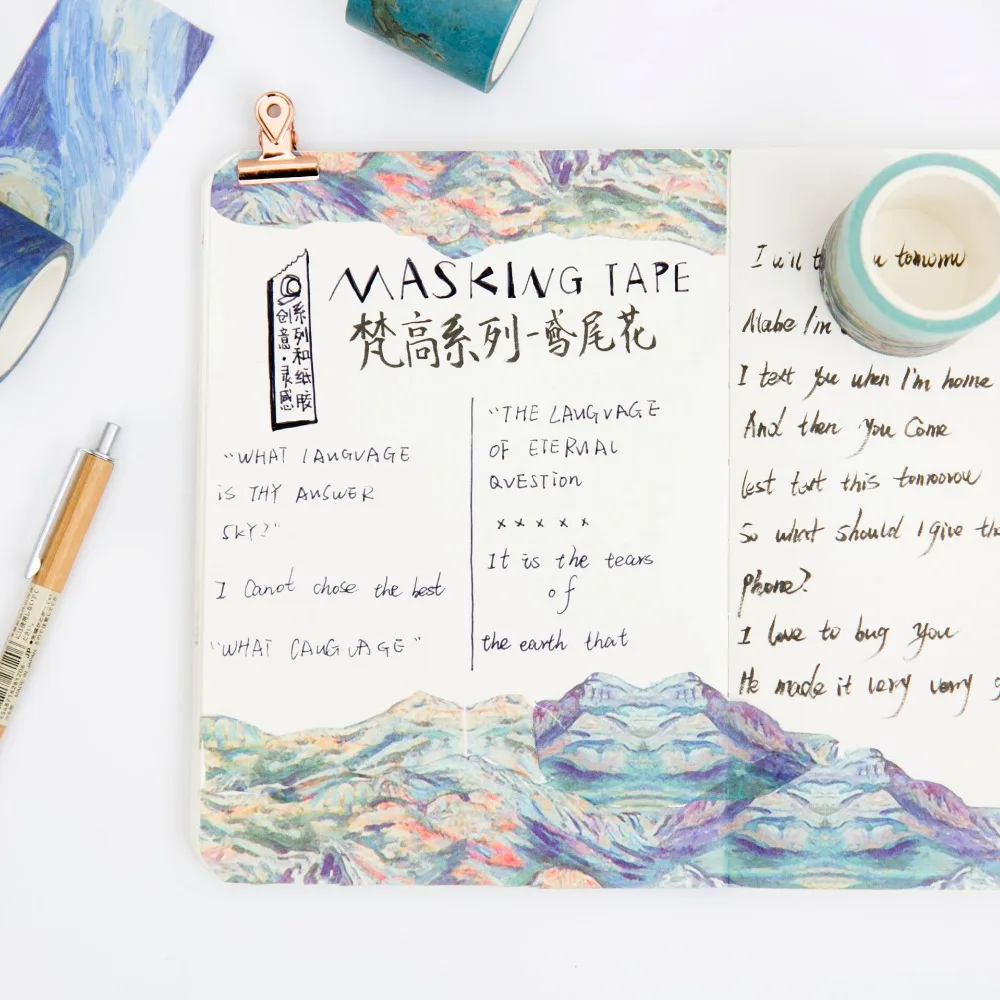 MASKING TAPE
梵高系列-鸢尾花
系列和纸胶
创意·灵感
"WHAT LANGUAGE
IS THY ANSWER
SKY?"
I Canot chose the best
"WHAT LANGUAGE"
"THE LANGUAGE
OF ETERNAL
QUESTION
x x x x x
It is the tears
of
the earth that
I will tomorrow
Mabe I'm
I text you when I'm home
And then you Come
lest text this tomorrow
So what should I give the
phone?
I love to bug you
He made it very very